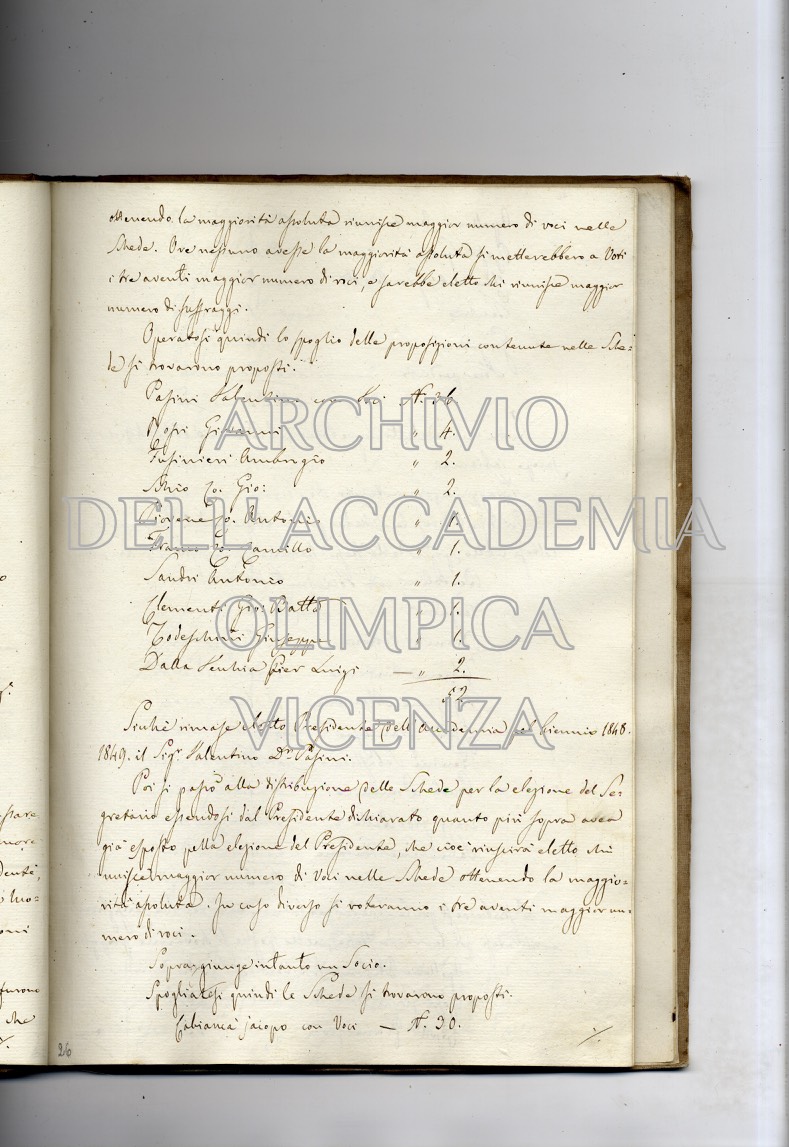 ottenendo la maggiorità assoluta riunisse maggior numero di voci nelle
Schede. Ove nessuno avesse la maggiorità assoluta si metterebbero a Voti
i tre aventi maggior numero di voci, e sarebbe eletto chi riunisse maggior
numero di suffraggi.
Operatosi quindi lo spoglio delle proposizioni contenute nelle Sche=
de si trovarono proposti.
Pasini Valentino con Voci N. 36
Giovanni " 4.
Fusinieri Ambrogio " 2.
Schio Co. Gio: " 2.
Piovene Co. Antonio " 1.
Franco Co. Camillo " 1.
Sandri Antonio " 1.
Clementi Gio: Batta " 1.
Todeschini Giuseppe " 1.
Dalla Vecchia Pier Luigi — " 2.
52
Sicchè rimase eletto Presidente dell'Accademia pel biennio 1848.
1849. il Sigr Valentino Dr Pasini.
Poi si passò alla distribuzione delle Schede per la elezione del Se=
gretario essendosi dal Presidente dichiarato quanto più sopra avea
già esposto pella elezione del Presidente, che cioè riuscirà eletto chi
unisce maggior numero di Voci nelle Schede ottenendo la maggio=
rità assoluta. In caso diverso si voteranno i tre aventi maggior nu=
mero di voci.
Sopraggiunge intanto un Socio.
Spogliatesi quindi le Schede si trovarono proposti.
Cabianca Jacopo con Voci — N. 30.
./.
26
ARCHIVIO
DELL'ACCADEMIA
OLIMPICA
VICENZA